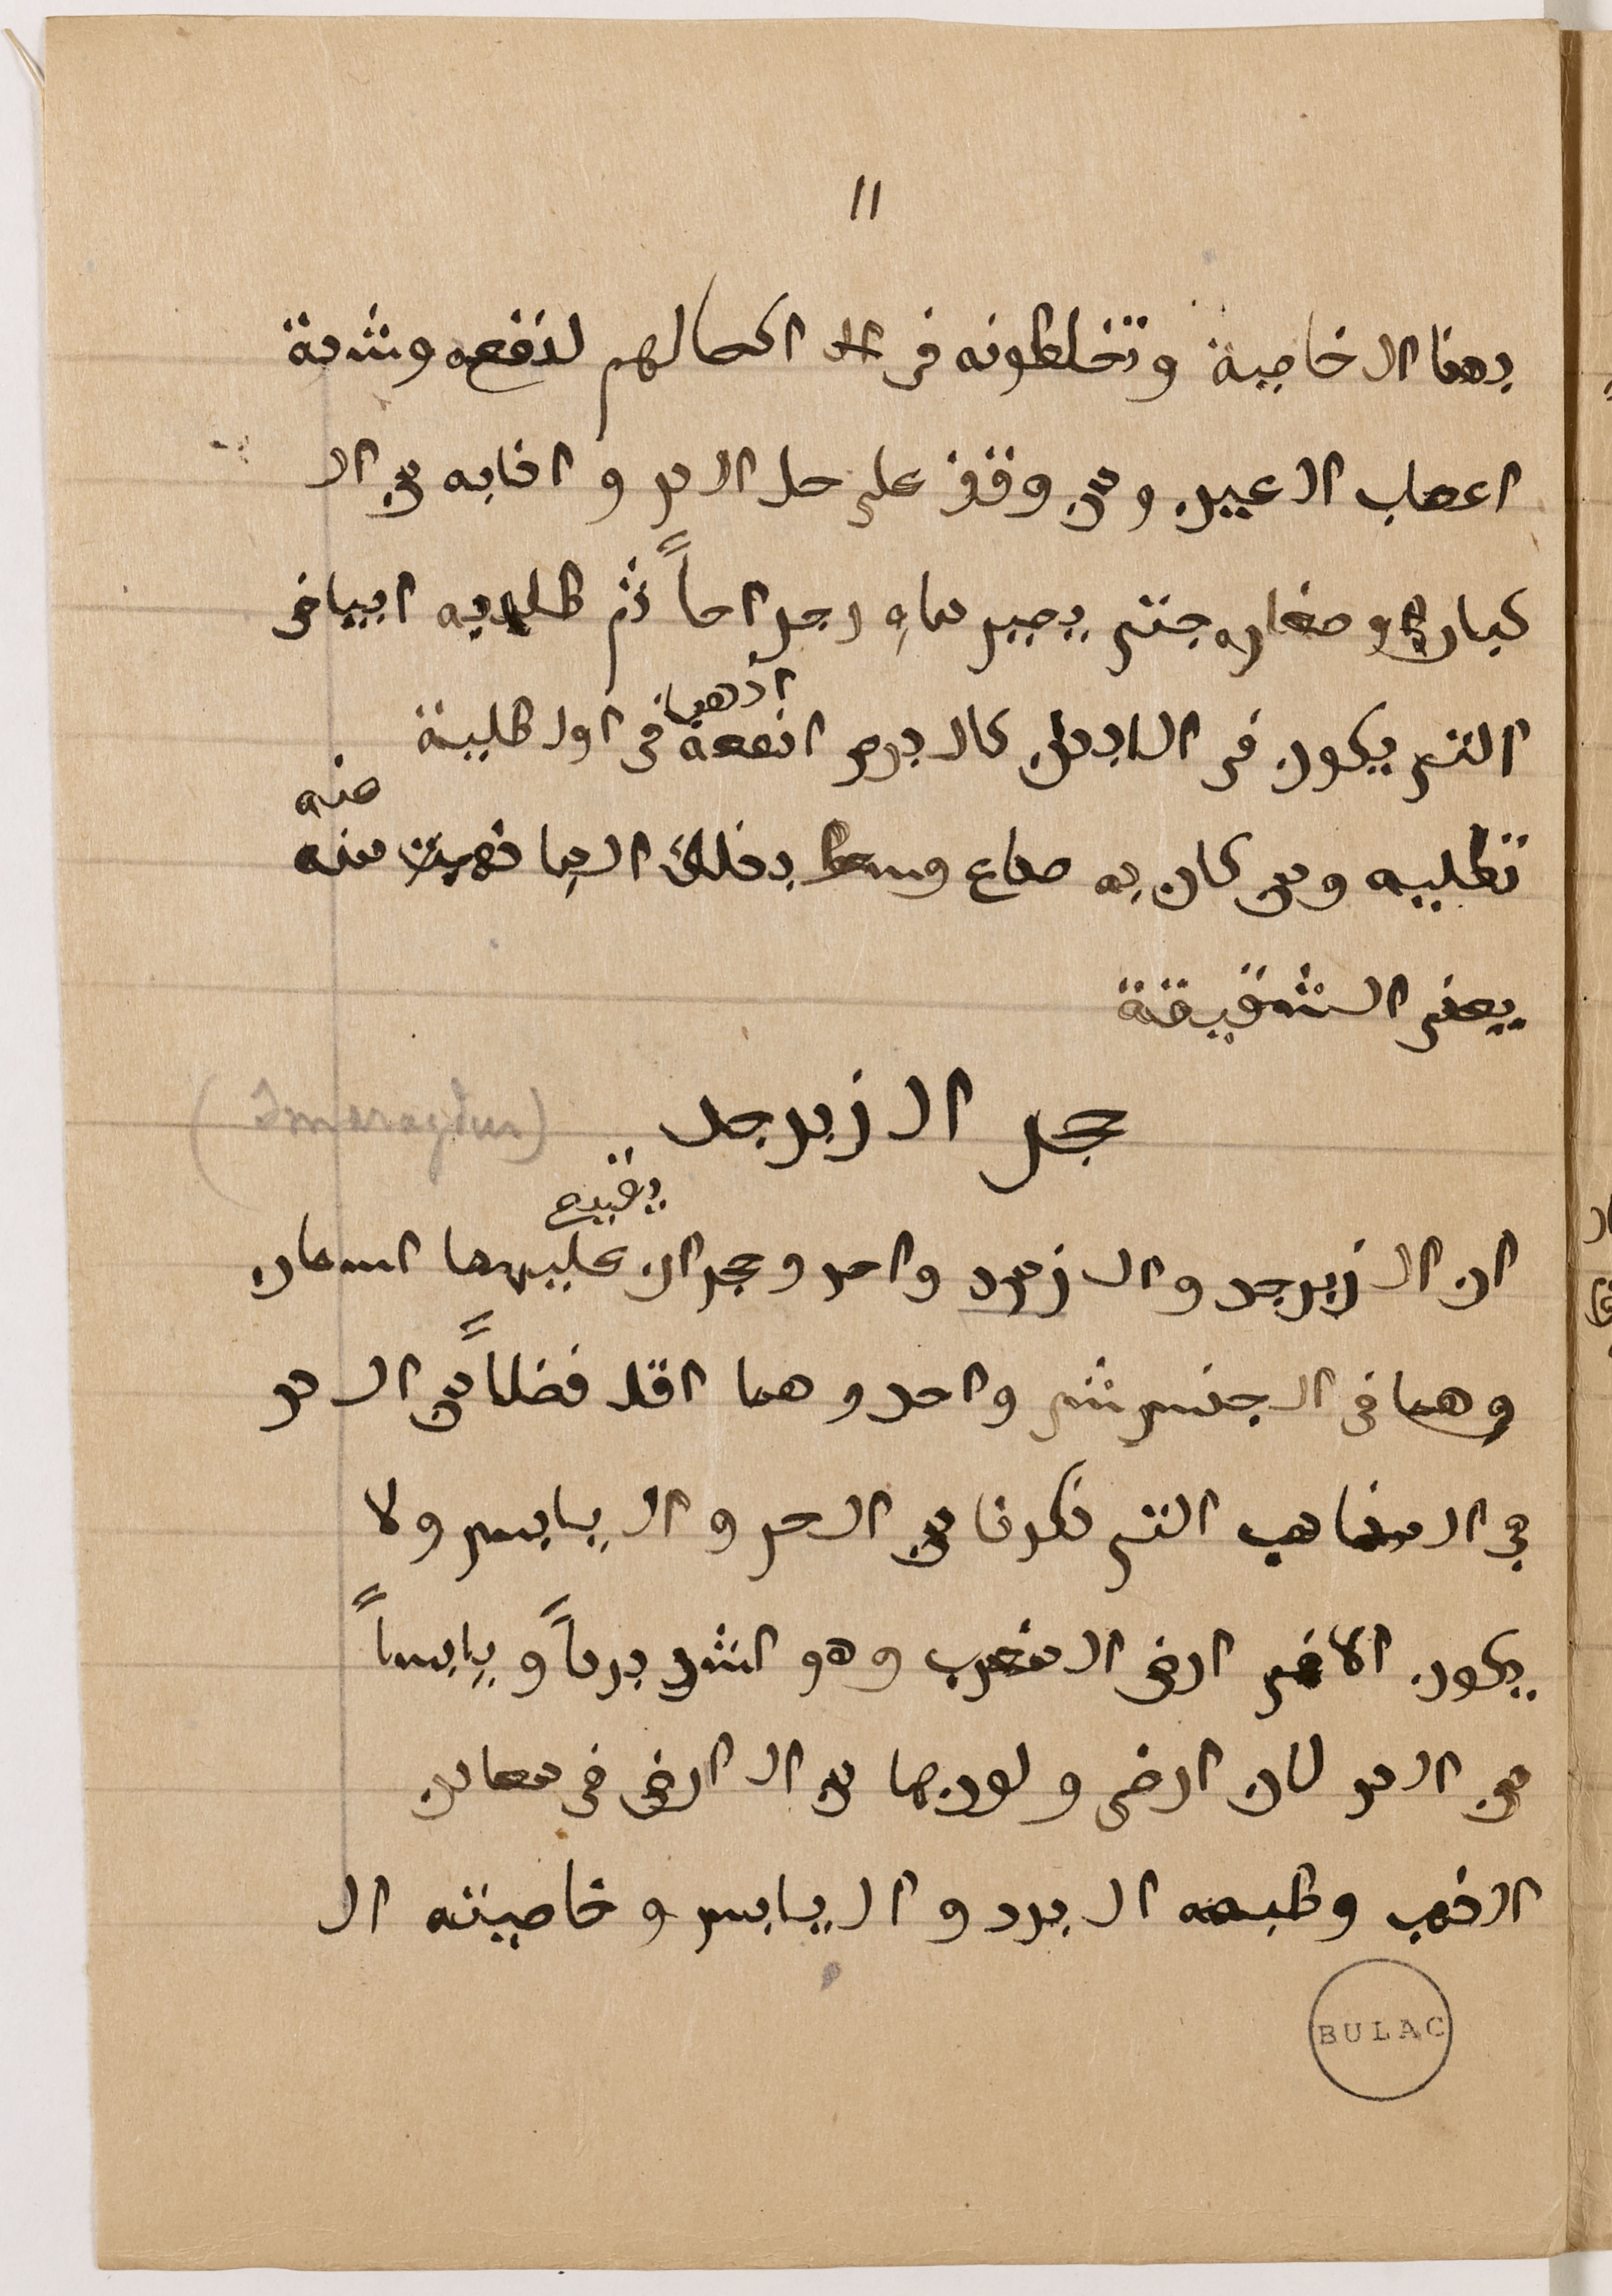 11
بهذا الخاصية وتخلطونه فى الـ اكحالهم لنفعه وشدة
اعصاب العين ومن وقف على حل الدر واذابه من ال
كباره وصغاره حتى يصير ماءٍ رجراجاً ثم طلى به البياض
الذى يكون فى الابدان كالبرص
اذهبه
انفعه فى اول طلية
تطليه ومن كان به صداع وسعط بذلك الما ذهبت عنه
منه
يعنى الشقيقة
حجر الزبرجد (Smaragdus)
يقع
ان الزبرجد والزمرد واحد وحجران عليهما اسمان
وهما فى الجنس شى واحد وهما اقل فضلاً من الدر
فى المذاهب التى ذكرنا من الحر واليابس ولا
يكون الا فى ارض المغرب وهو اشد برداً ويابساً
من الدر لان ارضى ولونهما من الارض فى معادن
الذهب وطبعه البرد واليابس وخاصيته ال
BULAC